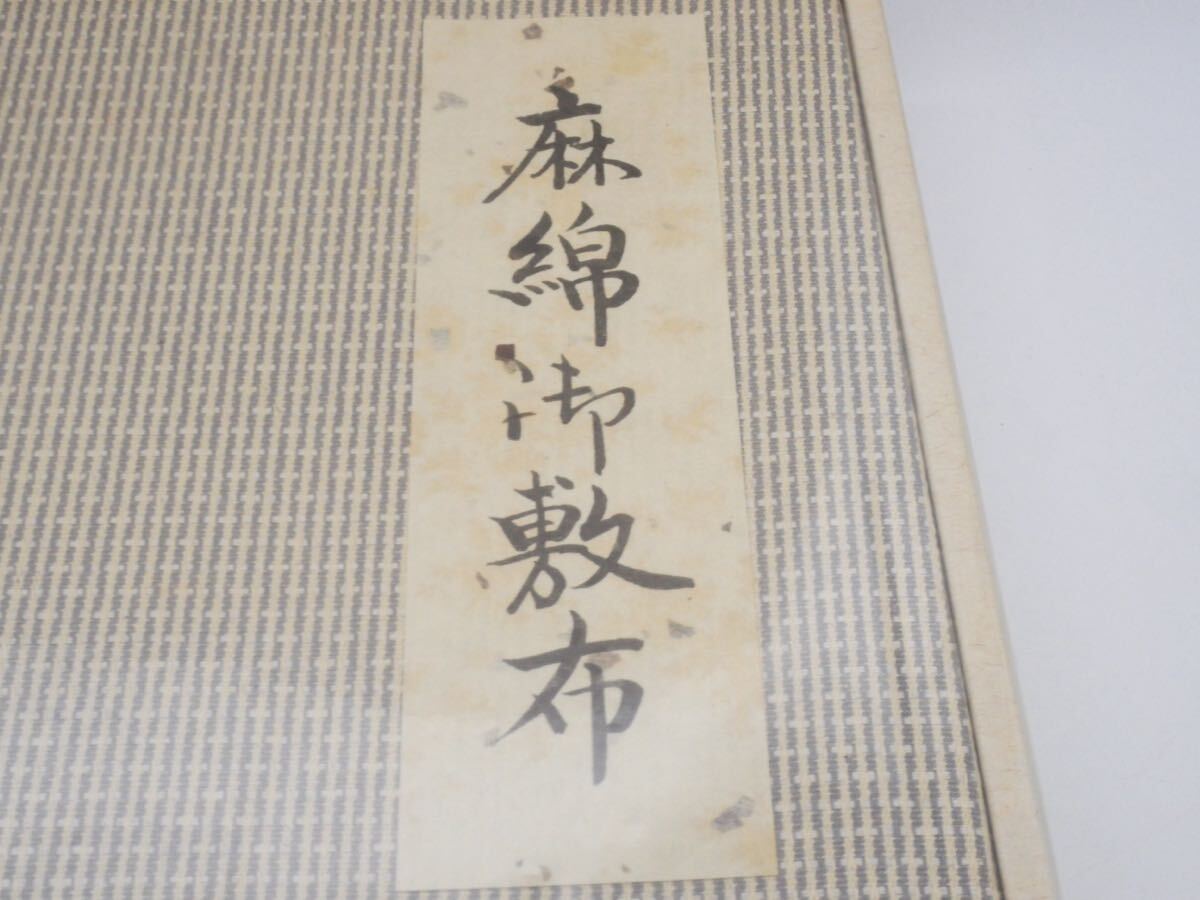 麻綿御敷布